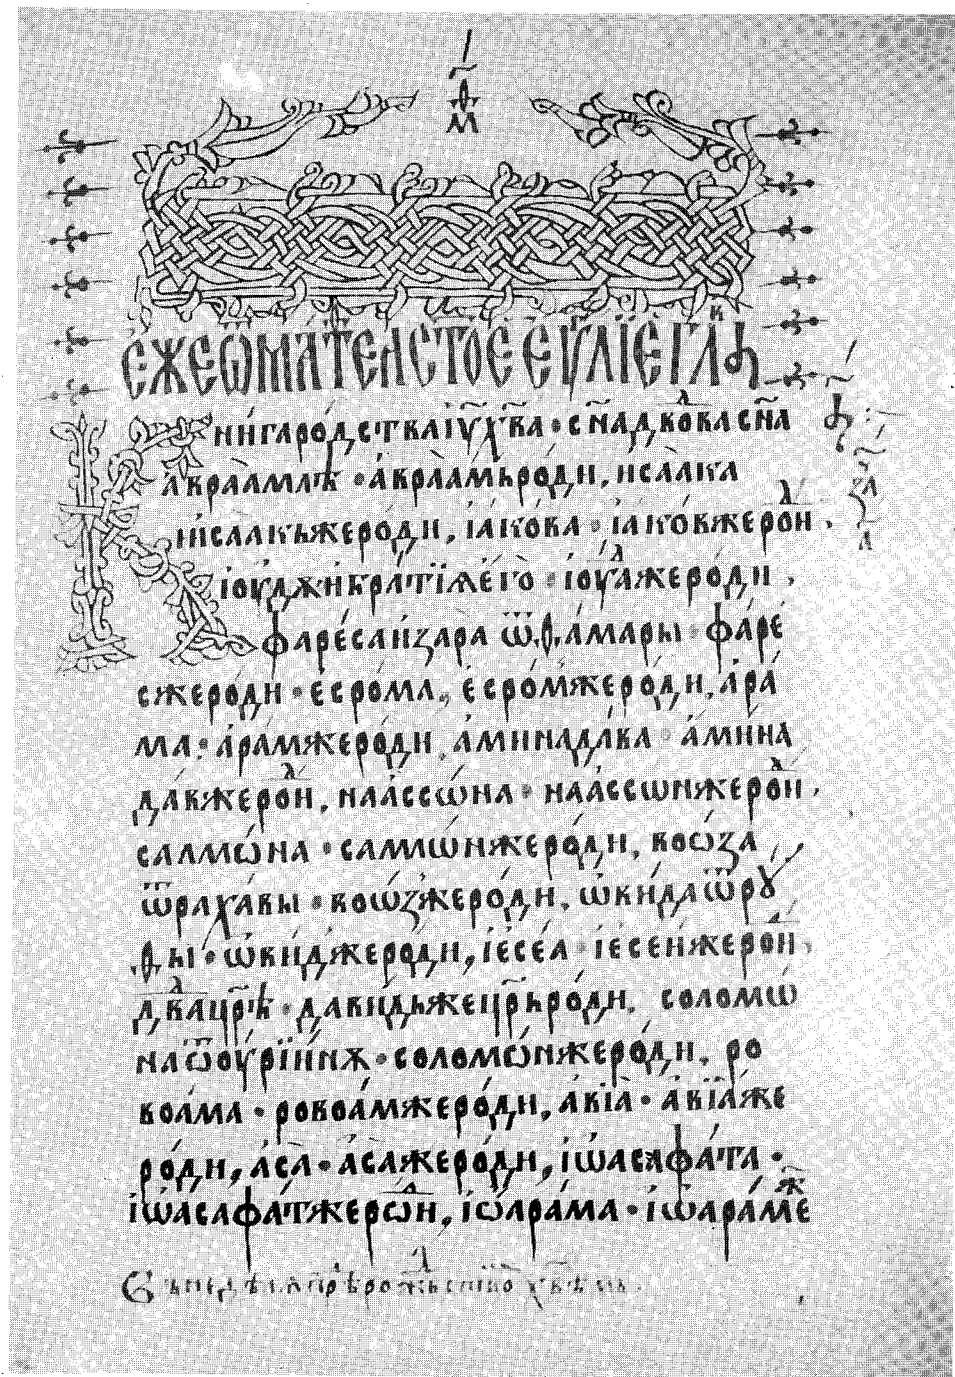 ЕЖЕѾМАТѲЕАСТОЕ ЕѴЛЇЕ ГЛ҃В
Книгародсткаі҃ѵх҃ва · сн҃адв҃окасн҃а
авраамлѣ · авраамьроди, исаака
исаакьжероди, іакова · іаковжеро́ди,
іоудѫибратїѧего · іоудажероди,
фаресаизара ѿѳамары · фаре
сжероди · есрома, есромжероди, ара
ма · арамжероди, аминадава · амина
давжероди, наассѡна · наассѡнжероди,
салмѡна · салмѡнжероди, воѡза
ѿрахавы · воѡзжероди, ѡвида ѿрꙋ
ѳы · ѡвиджероди, іесеа · іесеижероди,
дв҃дацр҃ѣ · давидьжецр҃ьроди, соломѡ
на ѿоурїинѫ · соломѡнжероди, ро
воама · ровоамжероди, авіа · авїаже
роди, аса · асажероди, іѡасафата ·
іѡасафатжероди, іѡарама · іѡараме